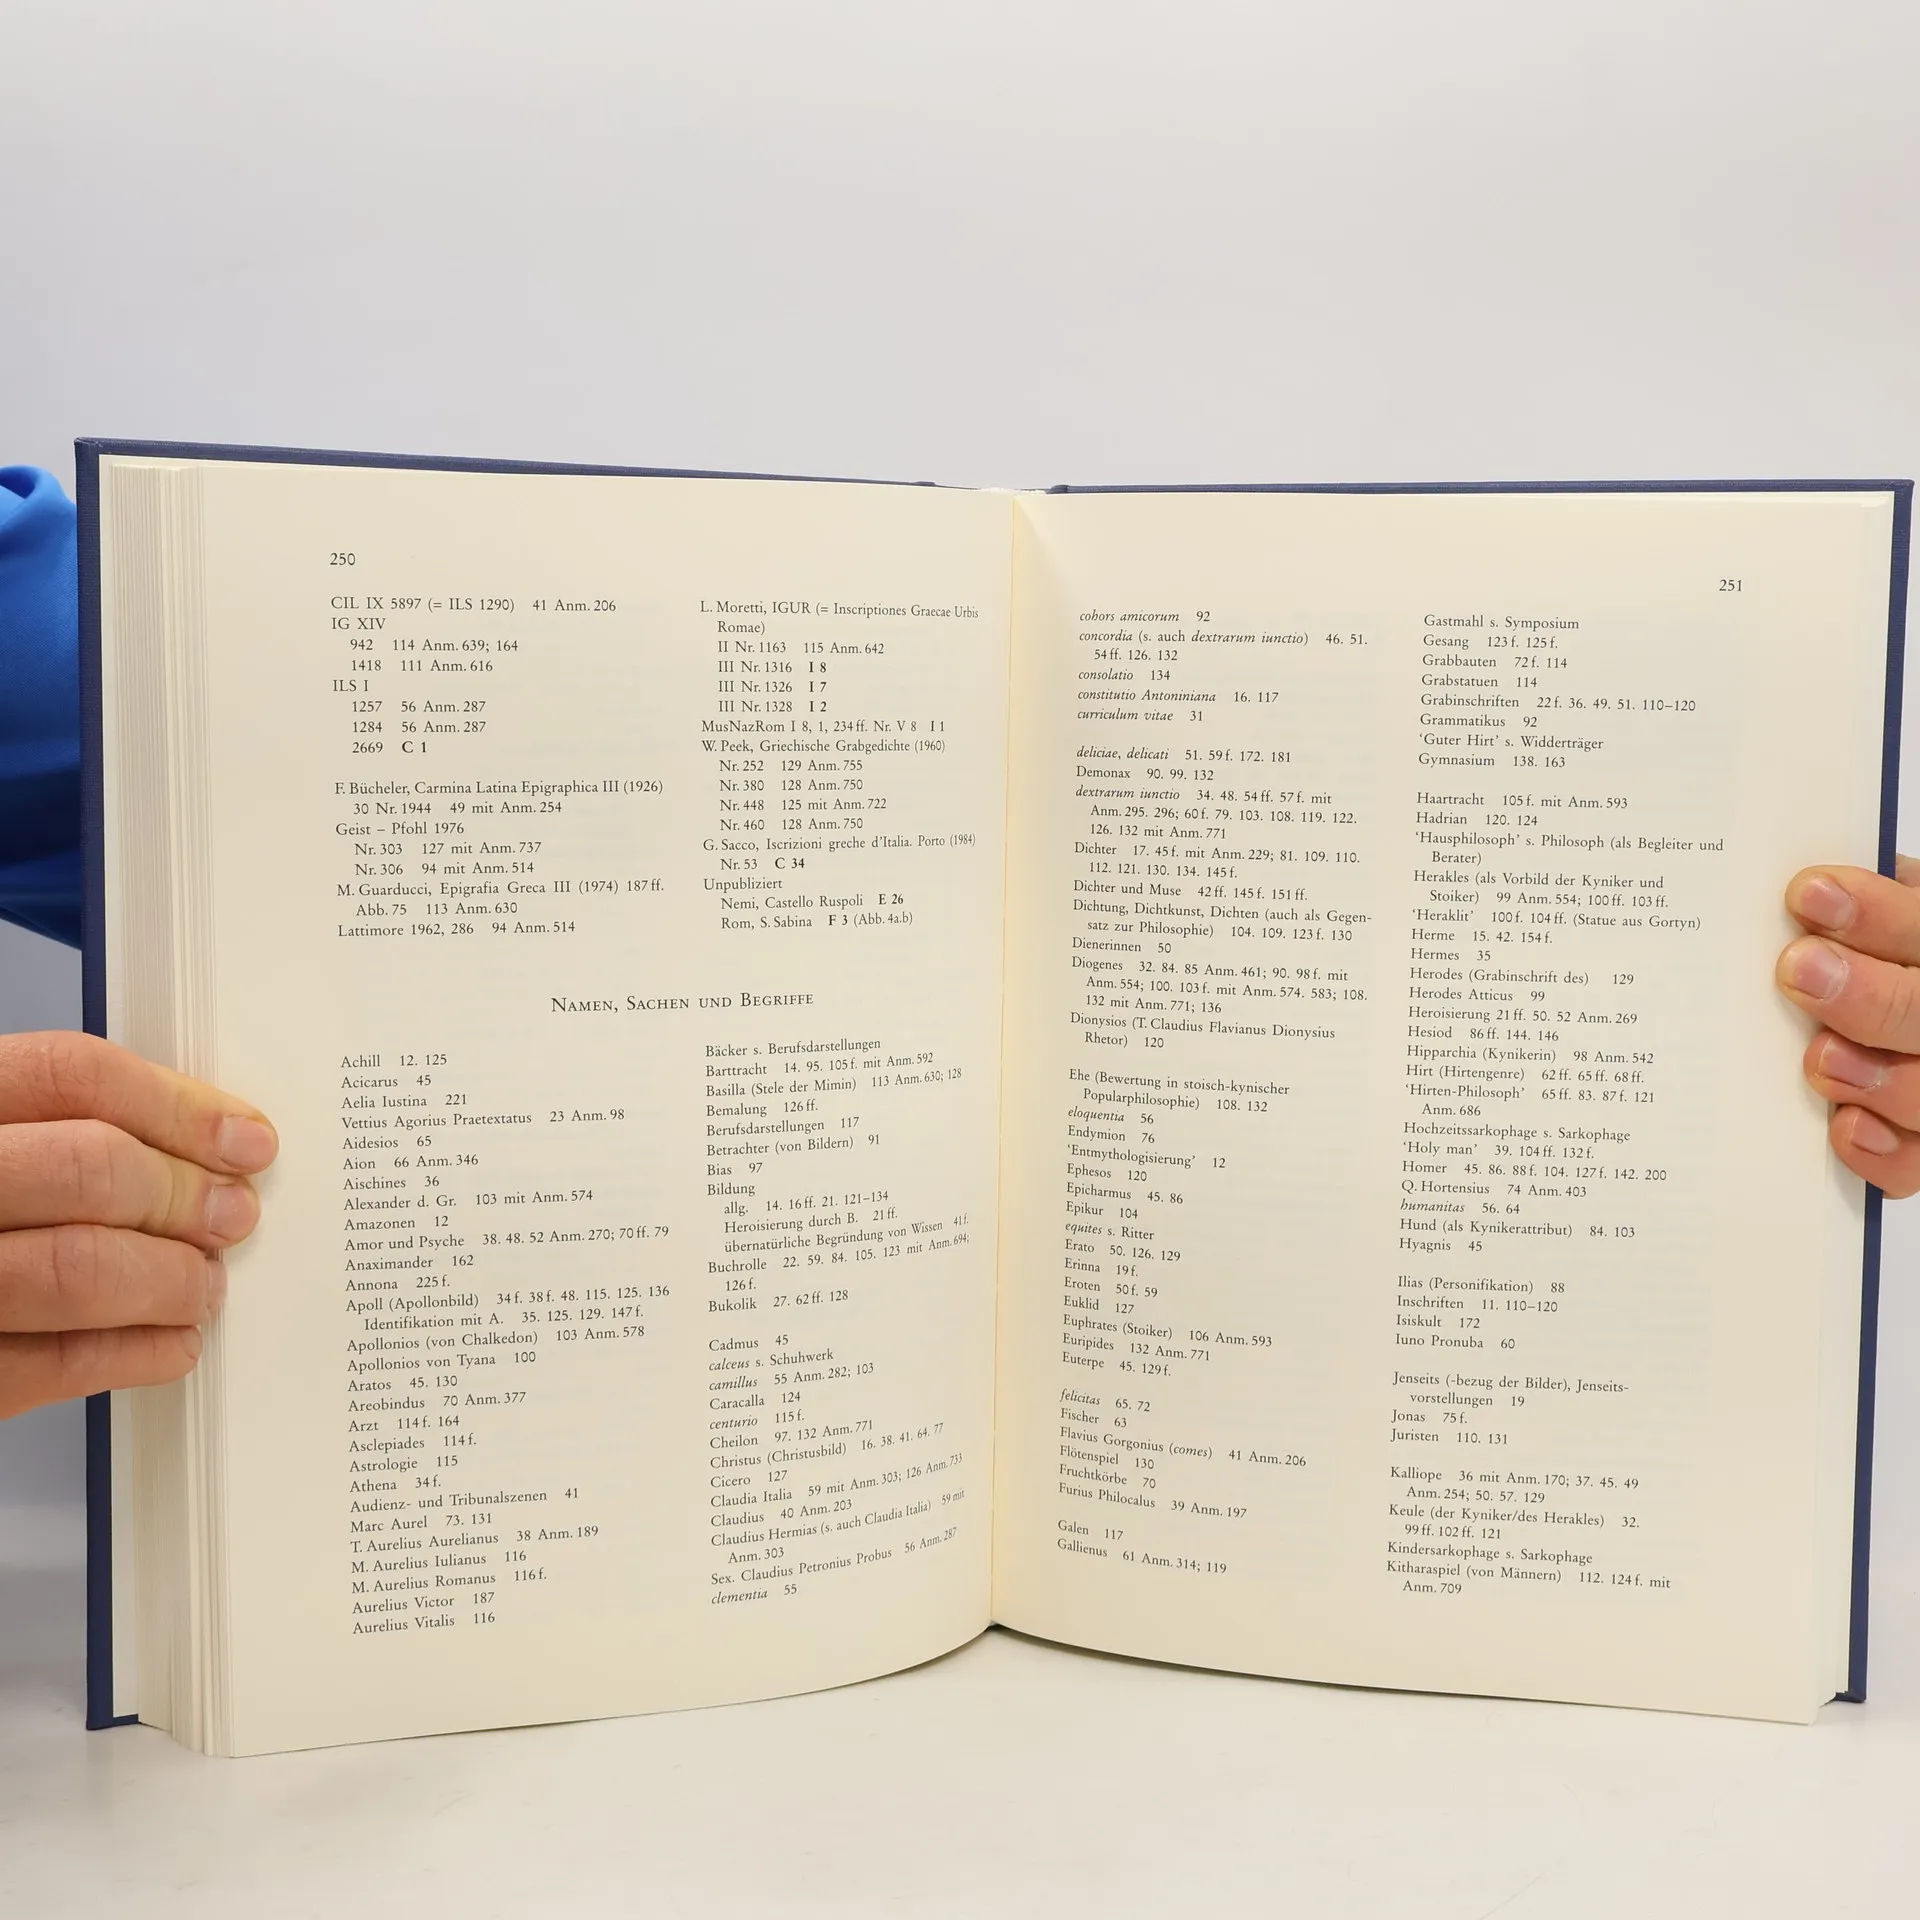 250
CIL IX 5897 (= ILS 1290) 41 Anm. 206
IG XIV
942 114 Anm. 639; 164
1418 111 Anm. 616
ILS I
1257 56 Anm. 287
1284 56 Anm. 287
2669 C 1
F. Bücheler, Carmina Latina Epigraphica III (1926)
30 Nr. 1944 49 mit Anm. 254
Geist – Pfohl 1976
Nr. 303 127 mit Anm. 737
Nr. 306 94 mit Anm. 514
M. Guarducci, Epigrafia Greca III (1974) 187 ff.
Abb. 75 113 Anm. 630
Lattimore 1962, 286 94 Anm. 514
L. Moretti, IGUR (= Inscriptiones Graecae Urbis
Romae)
II Nr. 1163 115 Anm. 642
III Nr. 1316 I 8
III Nr. 1326 I 7
III Nr. 1328 I 2
MusNazRom I 8, 1, 234 ff. Nr. V 8 I 1
W. Peek, Griechische Grabgedichte (1960)
Nr. 252 129 Anm. 755
Nr. 380 128 Anm. 750
Nr. 448 125 mit Anm. 722
Nr. 460 128 Anm. 750
G. Sacco, Iscrizioni greche d'Italia. Porto (1984)
Nr. 53 C 34
Unpubliziert
Nemi, Castello Ruspoli E 26
Rom, S. Sabina F 3 (Abb. 4a.b)
NAMEN, SACHEN UND BEGRIFFE
Achill 12. 125
Acicarus 45
Aelia Iustina 221
Vettius Agorius Praetextatus 23 Anm. 98
Aidesios 65
Aion 66 Anm. 346
Aischines 36
Alexander d. Gr. 103 mit Anm. 574
Amazonen 12
Amor und Psyche 38. 48. 52 Anm. 270; 70 ff. 79
Anaximander 162
Annona 225 f.
Apoll (Apollonbild) 34 f. 38 f. 48. 115. 125. 136
Identifikation mit A. 35. 125. 129. 147 f.
Apollonios (von Chalkedon) 103 Anm. 578
Apollonios von Tyana 100
Aratos 45. 130
Areobindus 70 Anm. 377
Arzt 114 f. 164
Asclepiades 114 f.
Astrologie 115
Athena 34 f.
Audienz- und Tribunalszenen 41
Marc Aurel 73. 131
T. Aurelius Aurelianus 38 Anm. 189
M. Aurelius Iulianus 116
M. Aurelius Romanus 116 f.
Aurelius Victor 187
Aurelius Vitalis 116
Bäcker s. Berufsdarstellungen
Barttracht 14. 95. 105 f. mit Anm. 592
Basilla (Stele der Mimin) 113 Anm. 630; 128
Bemalung 126 ff.
Berufsdarstellungen 117
Betrachter (von Bildern) 91
Bias 97
Bildung
allg. 14. 16 ff. 21. 121–134
Heroisierung durch B. 21 ff.
übernatürliche Begründung von Wissen 41 f.
Buchrolle 22. 59. 84. 105. 123 mit Anm. 694;
126 f.
Bukolik 27. 62 ff. 128
Cadmus 45
calceus s. Schuhwerk
camillus 55 Anm. 282; 103
Caracalla 124
centurio 115 f.
Cheilon 97. 132 Anm. 771
Christus (Christusbild) 16. 38. 41. 64. 77
Cicero 127
Claudia Italia 59 mit Anm. 303; 126 Anm. 733
Claudius 40 Anm. 203
Claudius Hermias (s. auch Claudia Italia) 59 mit
Anm. 303
Sex. Claudius Petronius Probus 56 Anm. 287
clementia 55
251
cohors amicorum 92
concordia (s. auch dextrarum iunctio) 46. 51.
54 ff. 126. 132
consolatio 134
constitutio Antoniniana 16. 117
curriculum vitae 31
deliciae, delicati 51. 59 f. 172. 181
Demonax 90. 99. 132
dextrarum iunctio 34. 48. 54 ff. 57 f. mit
Anm. 295. 296; 60 f. 79. 103. 108. 119. 122.
126. 132 mit Anm. 771
Dichter 17. 45 f. mit Anm. 229; 81. 109. 110.
112. 121. 130. 134. 145 f.
Dichter und Muse 42 ff. 145 f. 151 ff.
Dichtung, Dichtkunst, Dichten (auch als Gegen-
satz zur Philosophie) 104. 109. 123 f. 130
Dienerinnen 50
Diogenes 32. 84. 85 Anm. 461; 90. 98 f. mit
Anm. 554; 100. 103 f. mit Anm. 574. 583; 108.
132 mit Anm. 771; 136
Dionysios (T. Claudius Flavianus Dionysius
Rhetor) 120
Ehe (Bewertung in stoisch-kynischer
Popularphilosophie) 108. 132
eloquentia 56
Endymion 76
'Entmythologisierung' 12
Ephesos 120
Epicharmus 45. 86
Epikur 104
equites s. Ritter
Erato 50. 126. 129
Erinna 19 f.
Eroten 50 f. 59
Euklid 127
Euphrates (Stoiker) 106 Anm. 593
Euripides 132 Anm. 771
Euterpe 45. 129 f.
felicitas 65. 72
Fischer 63
Flavius Gorgonius (comes) 41 Anm. 206
Flötenspiel 130
Fruchtkörbe 70
Furius Philocalus 39 Anm. 197
Galen 117
Gallienus 61 Anm. 314; 119
Gastmahl s. Symposium
Gesang 123 f. 125 f.
Grabbauten 72 f. 114
Grabstatuen 114
Grabinschriften 22 f. 36. 49. 51. 110–120
Grammatikus 92
'Guter Hirt' s. Widderträger
Gymnasium 138. 163
Haartracht 105 f. mit Anm. 593
Hadrian 120. 124
'Hausphilosoph' s. Philosoph (als Begleiter und
Berater)
Herakles (als Vorbild der Kyniker und
Stoiker) 99 Anm. 554; 100 ff. 103 ff.
'Heraklit' 100 f. 104 ff. (Statue aus Gortyn)
Herme 15. 42. 154 f.
Hermes 35
Herodes (Grabinschrift des) 129
Herodes Atticus 99
Heroisierung 21 ff. 50. 52 Anm. 269
Hesiod 86 ff. 144. 146
Hipparchia (Kynikerin) 98 Anm. 542
Hirt (Hirtengenre) 62 ff. 65 ff. 68 ff.
'Hirten-Philosoph' 65 ff. 83. 87 f. 121
Anm. 686
Hochzeitssarkophage s. Sarkophage
'Holy man' 39. 104 ff. 132 f.
Homer 45. 86. 88 f. 104. 127 f. 142. 200
Q. Hortensius 74 Anm. 403
humanitas 56. 64
Hund (als Kynikerattribut) 84. 103
Hyagnis 45
Ilias (Personifikation) 88
Inschriften 11. 110–120
Isiskult 172
Iuno Pronuba 60
Jenseits (-bezug der Bilder), Jenseits-
vorstellungen 19
Jonas 75 f.
Juristen 110. 131
Kalliope 36 mit Anm. 170; 37. 45. 49
Anm. 254; 50. 57. 129
Keule (der Kyniker/des Herakles) 32.
99 ff. 102 ff. 121
Kindersarkophage s. Sarkophage
Kitharaspiel (von Männern) 112. 124 f. mit
Anm. 709